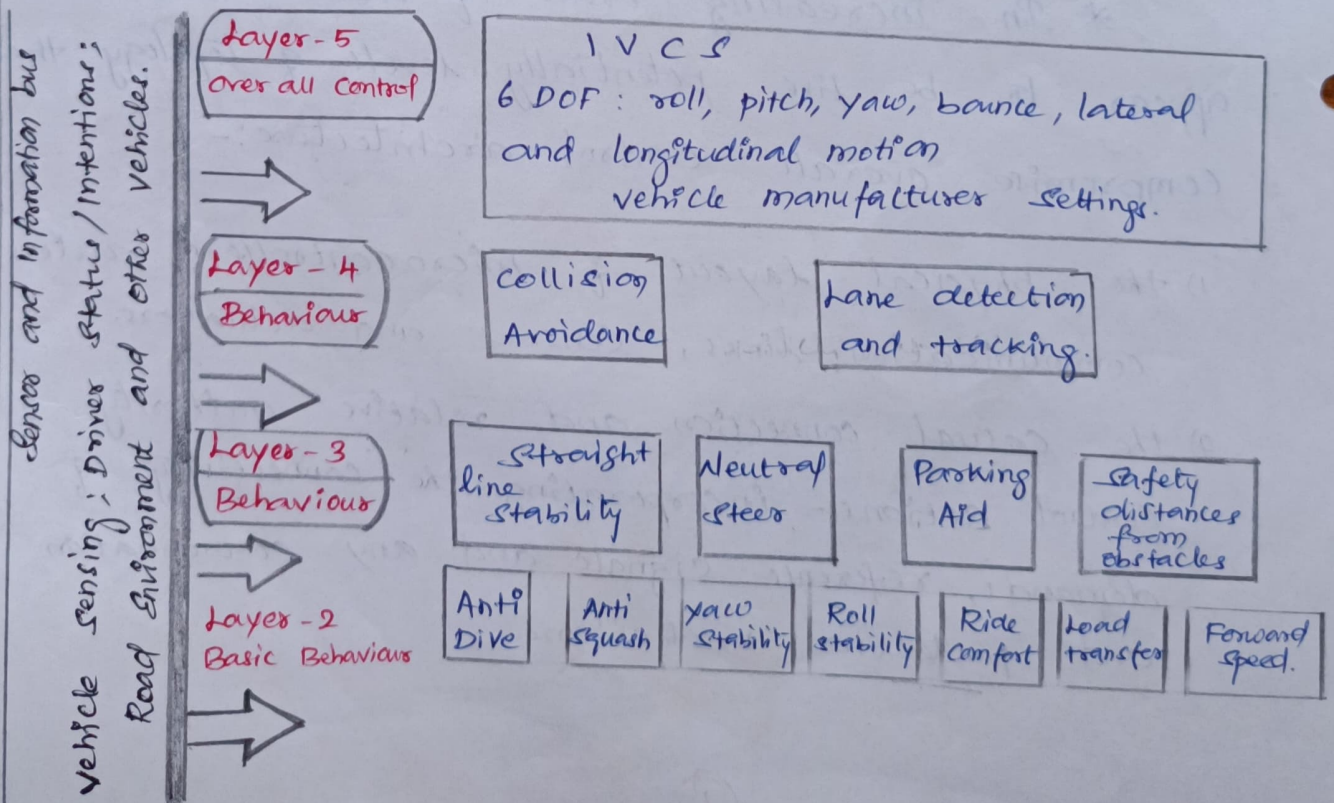 Sensor and information bus
Vehicle sensing: Driver status/Intentions:
Road Environment and other vehicles.
Layer-5
Over all Control
I V C S
6 DOF: roll, pitch, yaw, bounce, lateral
and longitudinal motion
vehicle manufacturer settings.
Layer-4
Behaviour
Collision
Avoidance
Lane detection
and tracking.
Layer-3
Behaviour
Straight
line
Stability
Neutral
Steer
Parking
Aid
Safety
distances
from
obstacles
Layer-2
Basic Behaviour
Anti
Dive
Anti
Squash
Yaw
Stability
Roll
Stability
Ride
Comfort
Load
transfer
Forward
Speed.